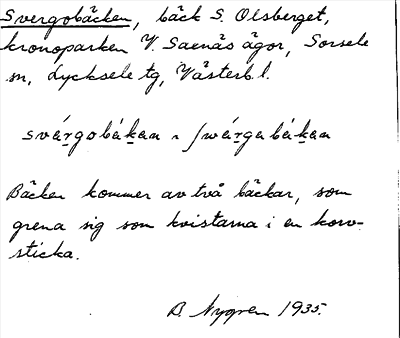 Svergobäcken, bäck S. Olsberget,
kronoparken V. Saenäs ägor, Sorsele
sn, Lycksele tg, Västerb. l.
svárgobákan ~ ʃwárgabákan
Bäcken kommer av två bäckar, som
grena sig som kvistarna i en korv-
sticka.
B. Nygren 1935.